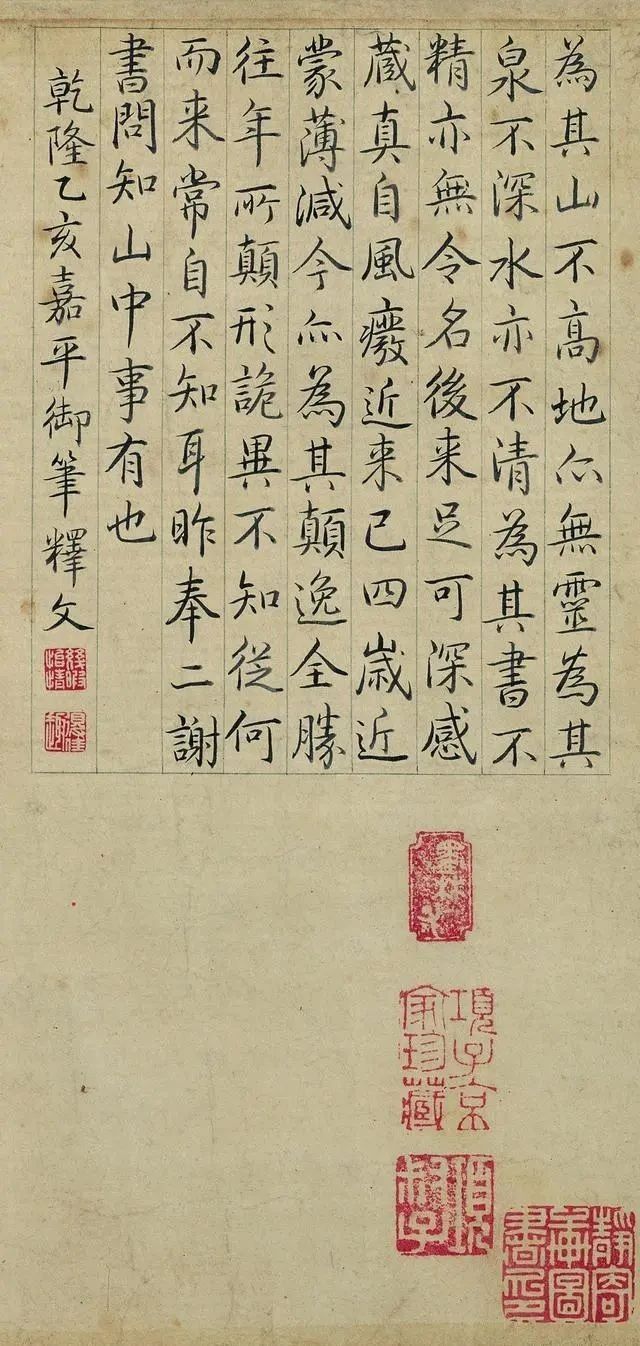 為其山不高地亦無靈為其
泉不深水亦不清為其書不
精亦無令名後来足可深感
蔵真自風癈近来已四歳近
蒙薄減今亦為其顛逸全勝
往年所顛形詭異不知從何
而来常自不知耳昨奉二謝
書問知山中事有也
乾隆乙亥嘉平御筆釋文
幾暇怡情
得佳趣
項子京
家珍藏